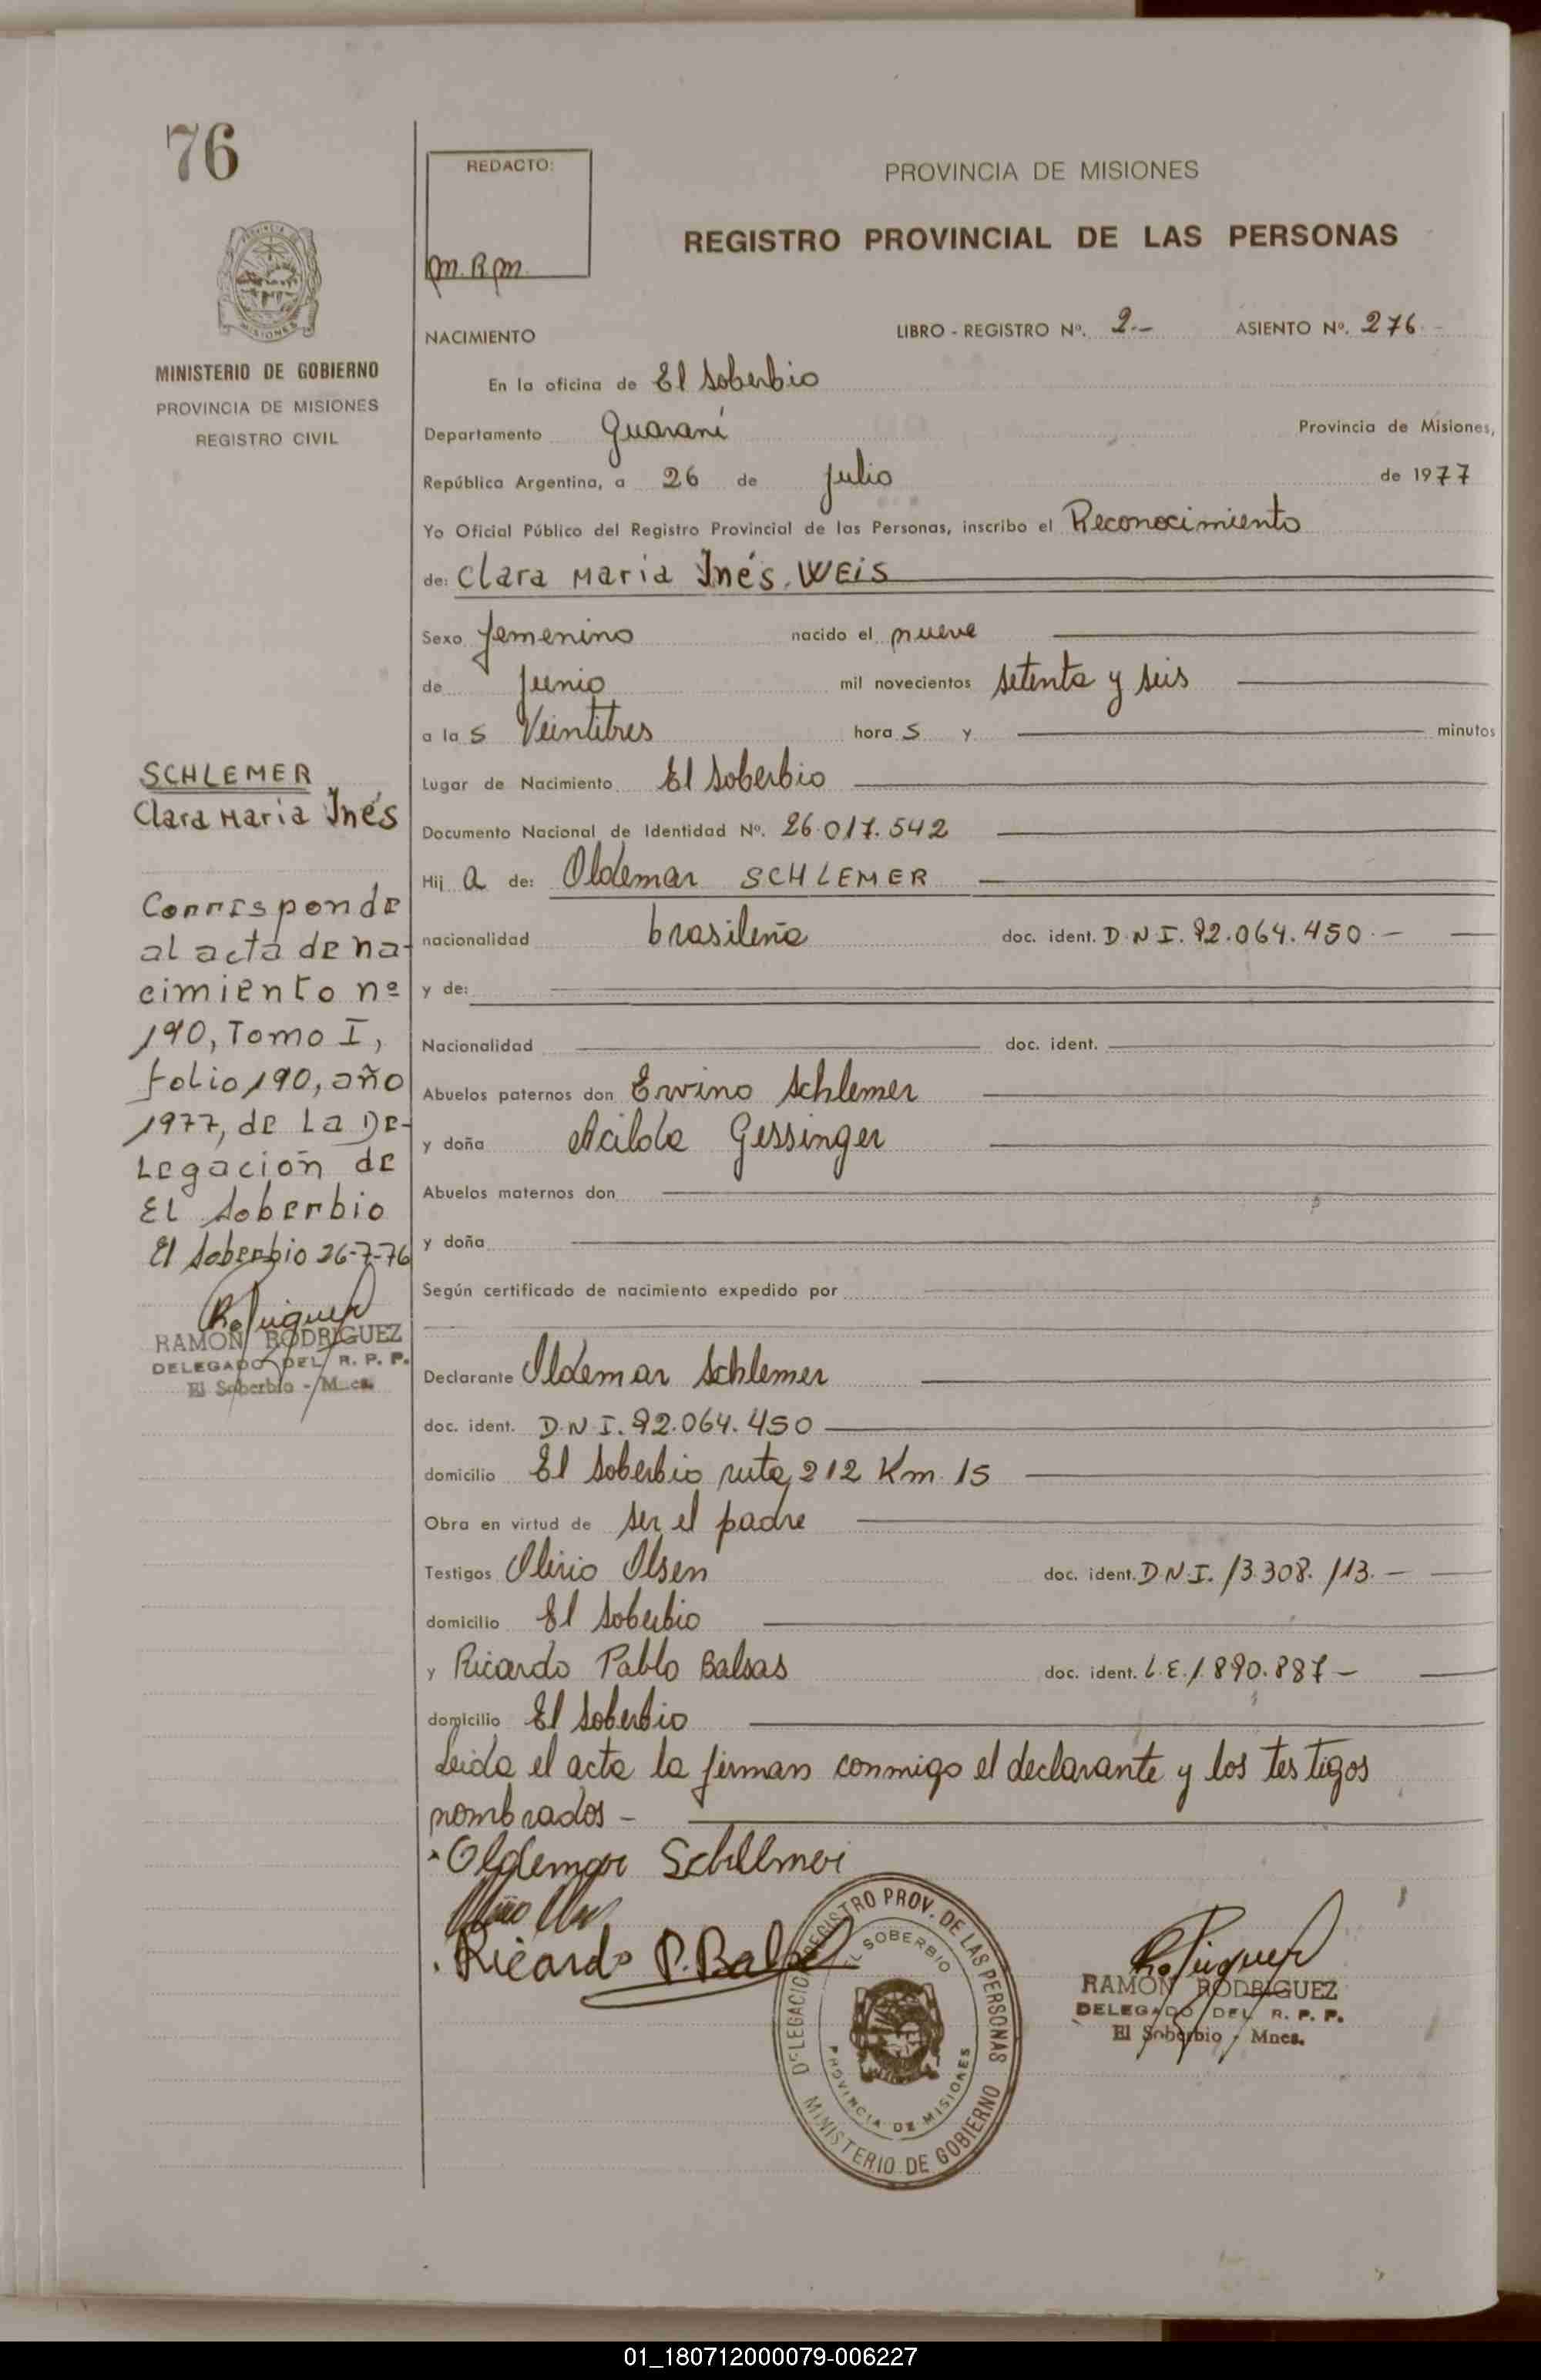 76
REDACTO:
m.R.m.
PROVINCIA DE MISIONES
REGISTRO PROVINCIAL DE LAS PERSONAS
MINISTERIO DE GOBIERNO
PROVINCIA DE MISIONES
REGISTRO CIVIL
NACIMIENTO LIBRO - REGISTRO Nº. 2.- ASIENTO Nº. 276.-
En la oficina de El Soberbio
Departamento Guaraní Provincia de Misiones,
República Argentina, a 26 de julio de 1977
Yo Oficial Público del Registro Provincial de las Personas, inscribo el Reconocimiento
de: Clara Maria Inés. WEIS
Sexo femenino nacido el nueve
de junio mil novecientos setenta y seis
a la s Veintitres hora s y minutos
Lugar de Nacimiento El Soberbio
Documento Nacional de Identidad Nº. 26.017.542
Hij a de: Oldemar SCHLEMER
nacionalidad brasileña doc. ident. D.N.I. 92.064.450.-
y de:
Nacionalidad doc. ident.
Abuelos paternos don Ervino Schlemer
y doña Acilda Gessinger
Abuelos maternos don
y doña
Según certificado de nacimiento expedido por
Declarante Oldemar Schlemer
doc. ident. D.N.I. 92.064.450
domicilio El Soberbio ruta 212 Km. 15
Obra en virtud de ser el padre
Testigos Olirio Olsen doc. ident. D.N.I. 13.308.113.-
domicilio El Soberbio
y Ricardo Pablo Balsas doc. ident. L.E. 1.890.887-
domicilio El Soberbio
Leida el acta la firman conmigo el declarante y los testigos
nombrados -
SCHLEMER
Clara Maria Inés
Corresponde
al acta de na-
cimiento nº
190, Tomo I,
folio 190, año
1977, de La De-
Legación de
El Soberbio
El Soberbio 26-7-76
RAMON RODRIGUEZ
DELEGADO DEL R. P. P.
El Soberbio - Mnes.
Oldemar Schllmer
Ricardo P. Balsas
DELEGACION REGISTRO PROV. DE LAS PERSONAS
EL SOBERBIO
PROVINCIA DE MISIONES
MINISTERIO DE GOBIERNO
RAMON RODRIGUEZ
DELEGADO DEL R. P. P.
El Soberbio - Mnes.
01_180712000079-006227